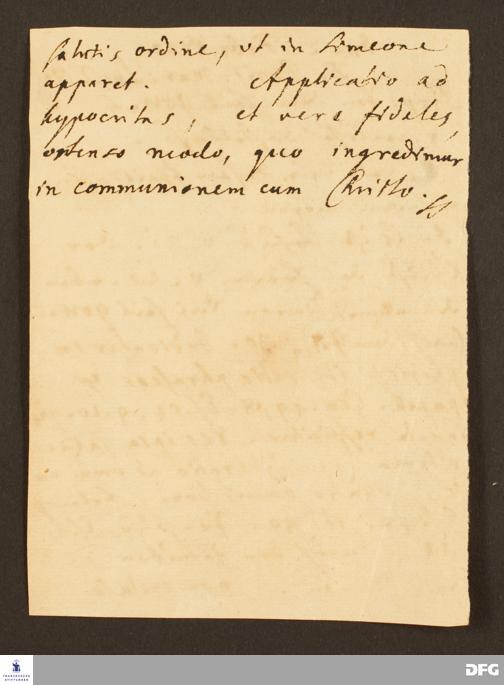 salutis ordine, ut in Simeone
apparet. Applicatio ad
hypocritas, et vere fideles,
ostenso modo, quo ingredimur
in communionem cum Christo.
FRANCKESCHE
STIFTUNGEN
DFG